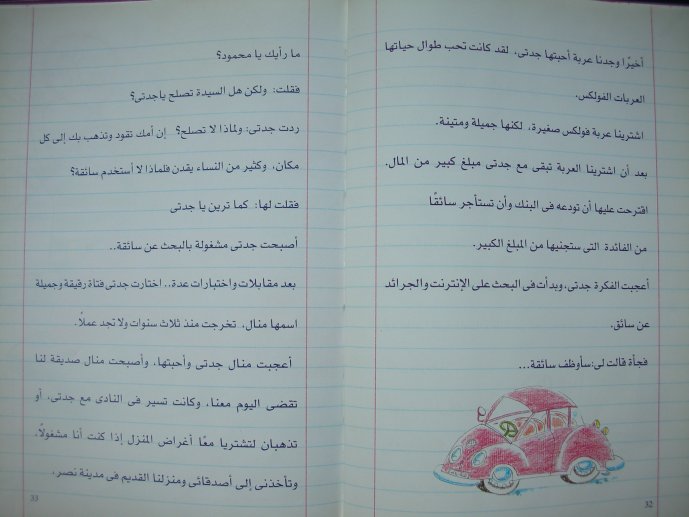 أخيرًا وجدنا عربة أحبتها جدتى. لقد كانت تحب طوال حياتها
العربات الفولكس.
اشترينا عربة فولكس صغيرة، لكنها جميلة ومتينة.
بعد أن اشترينا العربة تبقى مع جدتى مبلغ كبير من المال.
اقترحت عليها أن تودعه فى البنك وأن تستأجر سائقًا
من الفائدة التى ستجنيها من المبلغ الكبير.
أعجبت الفكرة جدتى، وبدأت فى البحث على الإنترنت والجرائد
عن سائق.
فجأة قالت لى: سأوظف سائقة...
32
ما رأيك يا محمود؟
فقلت: ولكن هل السيدة تصلح ياجدتى؟
ردت جدتى: ولماذا لا تصلح؟ إن أمك تقود وتذهب بك إلى كل
مكان، وكثير من النساء يقدن فلماذا لا أستخدم سائقة؟
فقلت لها: كما ترين يا جدتى
أصبحت جدتى مشغولة بالبحث عن سائقة..
بعد مقابلات واختبارات عدة.. اختارت جدتى فتاة رقيقة وجميلة
اسمها منال، تخرجت منذ ثلاث سنوات ولا تجد عملًا.
أعجبت منال جدتى وأحبتها، وأصبحت منال صديقة لنا
تقضى اليوم معنا، وكانت تسير فى النادى مع جدتى، أو
تذهبان لتشتريا معًا أغراض المنزل إذا كنت أنا مشغولًا،
وتأخذنى إلى أصدقائى ومنزلنا القديم فى مدينة نصر،
33